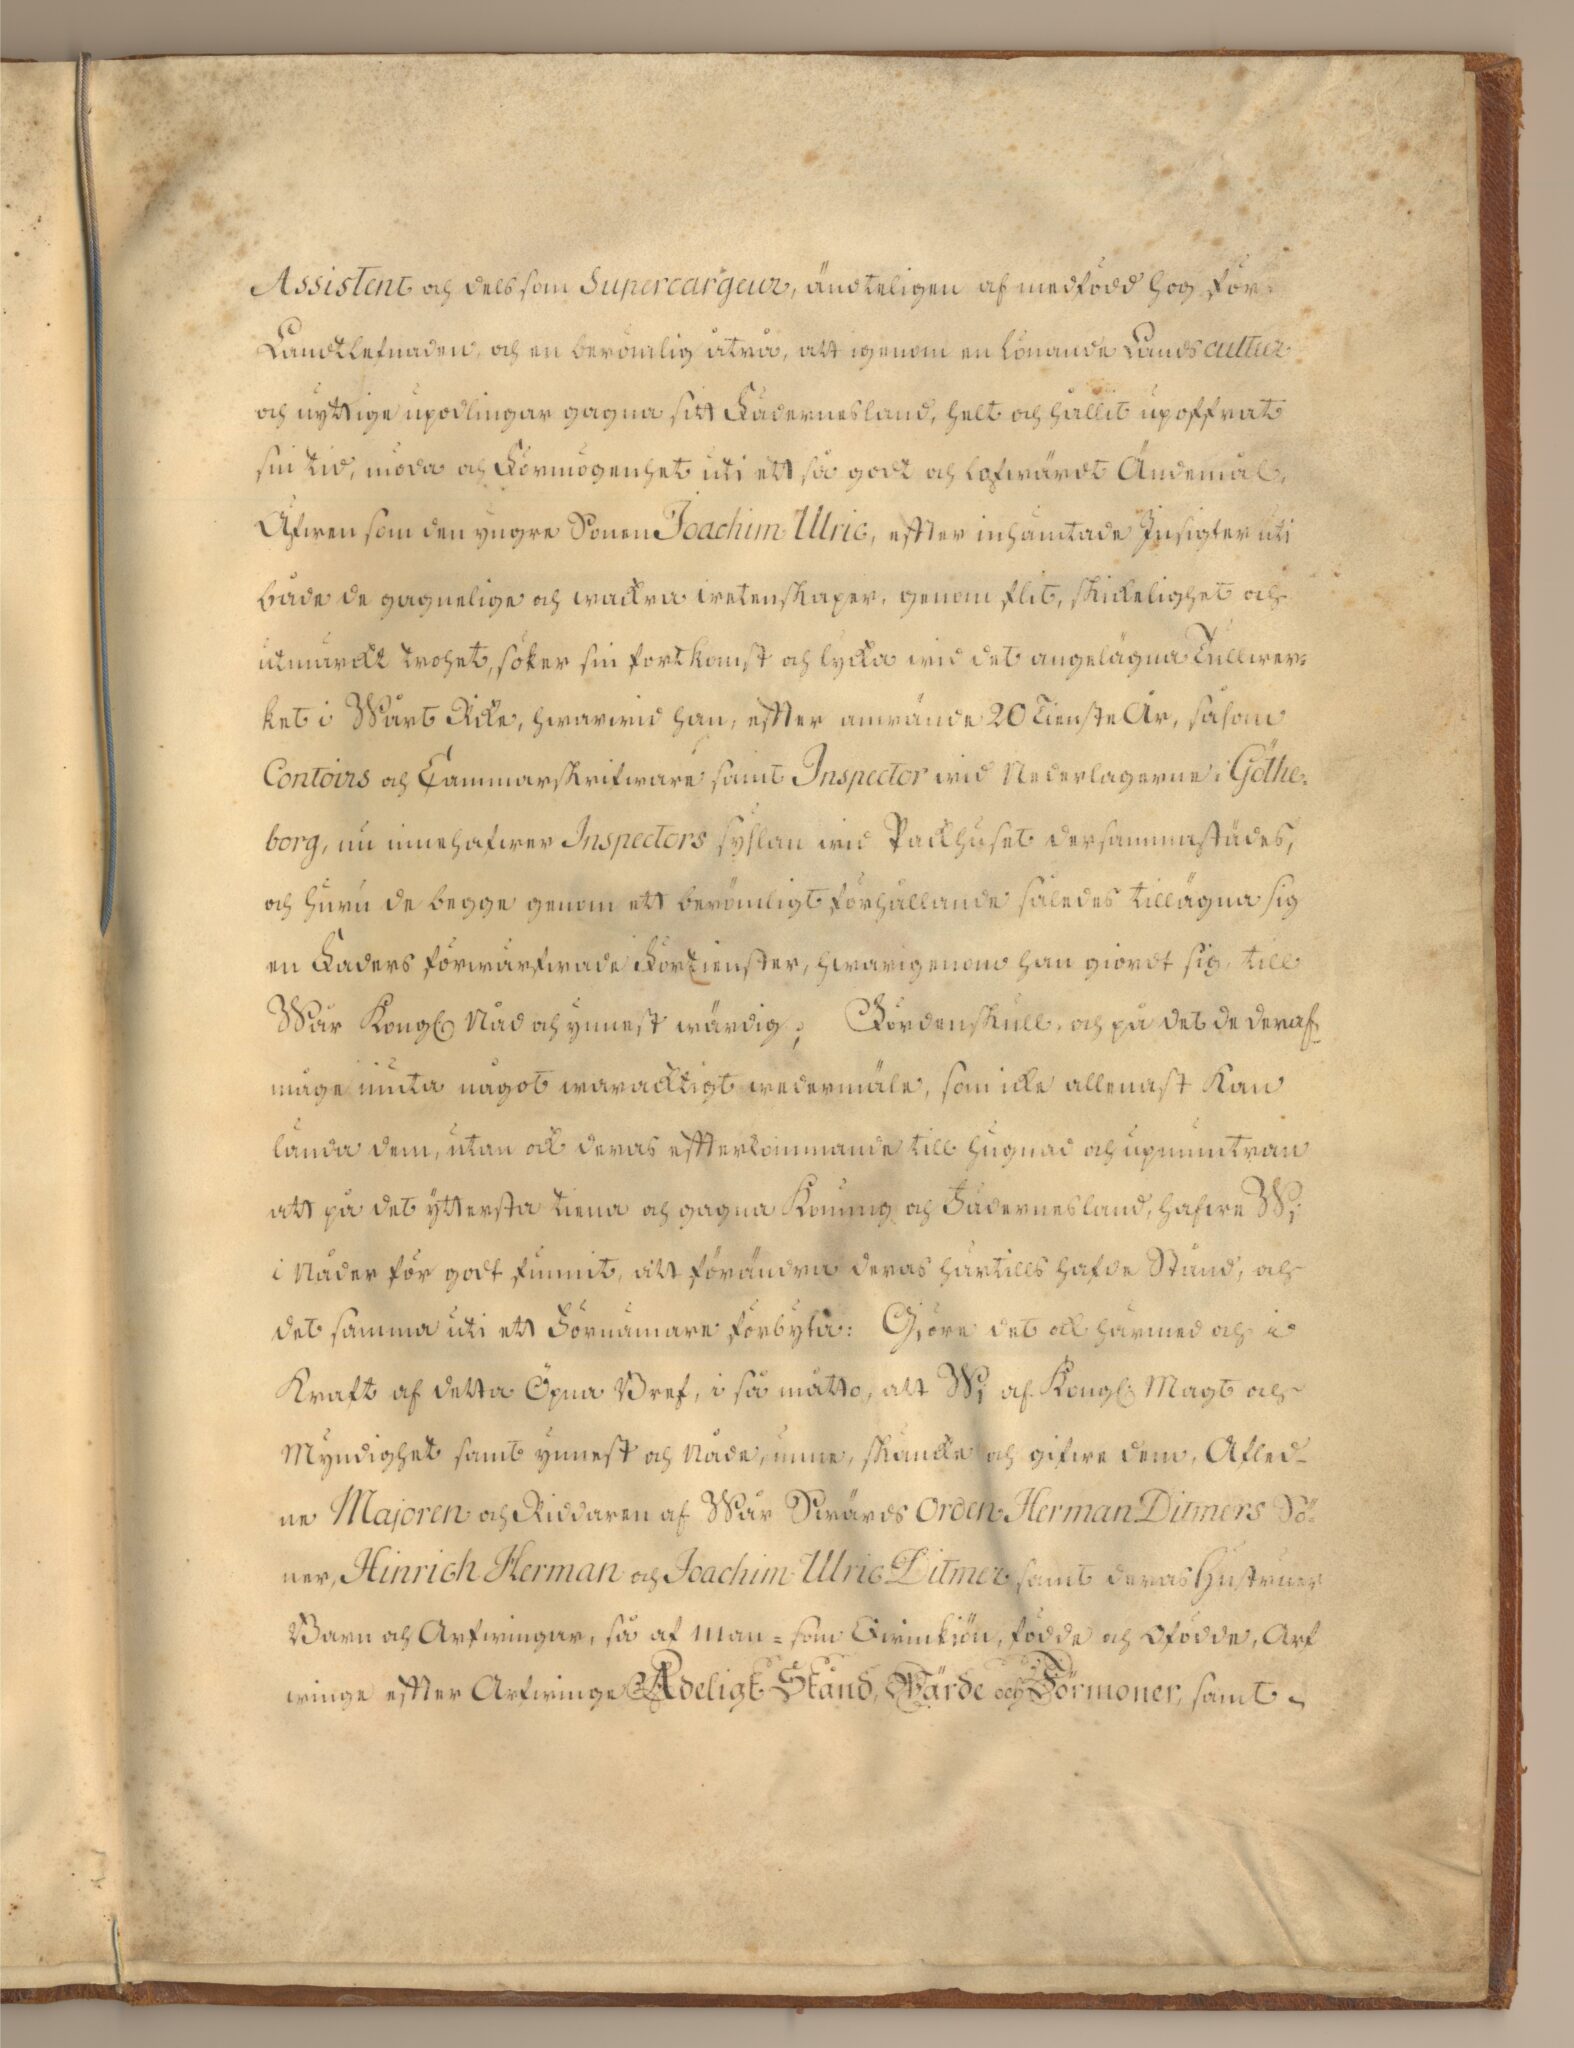 Assistent och dels som Supercargeur, ändteligen af medfödd hog för
Landtlefnaden, och en berömlig åtrå, att igenom en lönande Landscultur
och nyttige upodlingar gagna sitt Fädernesland, helt och hållit upoffrat
sin tid, möda och Förmögenhet uti ett så godt och lofwärdt Ändemål,
Äfwen som den yngre Sonen Joachim Ulric, effter inhämtade Insigter uti
både de gagnelige och wackra wetenskaper, genom flit, skickelighet och
utmärckt trohet, söker sin fortkomst och lycka wid det angelägna Tullwer-
ket i Wårt Ricke, hwarwid han, effter anwände 20 Tienste År, såsom
Contoirs och Cammarskrifware samt Inspector wid Nederlagerne i Göthe-
borg, nu innehafwer Inspectors syslan wid Packhuset dersammastädes,
och huru de begge genom ett berömligt förhållande således tillägna sig
en Faders förwärfwade Förtienster, hwarigenom han giordt sig till
Wår Kongl. Nåd och ynnest wärdig; Fördenskull, och på det de deraf
måge niuta något warachtigt wedermäle, som icke allenast kan
lända dem, utan ock deras effterkommande till hugnad och upmuntran
att på det yttersta tiena och gagna Konung och Fädernesland, hafwe Wi
i Nåder för godt funnit, att förändra deras härtills hafde Stånd, och
det samma uti ett Förnämare förbyta: Giöre det ock härmed och i
Kraft af detta Öpna Bref, i så måtto, att Wi af Kongl. Magt och
Myndighet samt ynnest och Nåde, unne, skäncke och gifwe dem, Afled-
ne Majoren och Riddaren af Wår Swärds Orden Herman Ditmers Sö-
ner, Hinrich Herman och Joachim Ulric Ditmer samt deras Hustruer
Barn och Arfwingar, så af Man- som Qwinkiön, födde och Ofödde, Arf
winge effter Arfwinge Adeligt Stånd, Wärde och Förmoner, samt